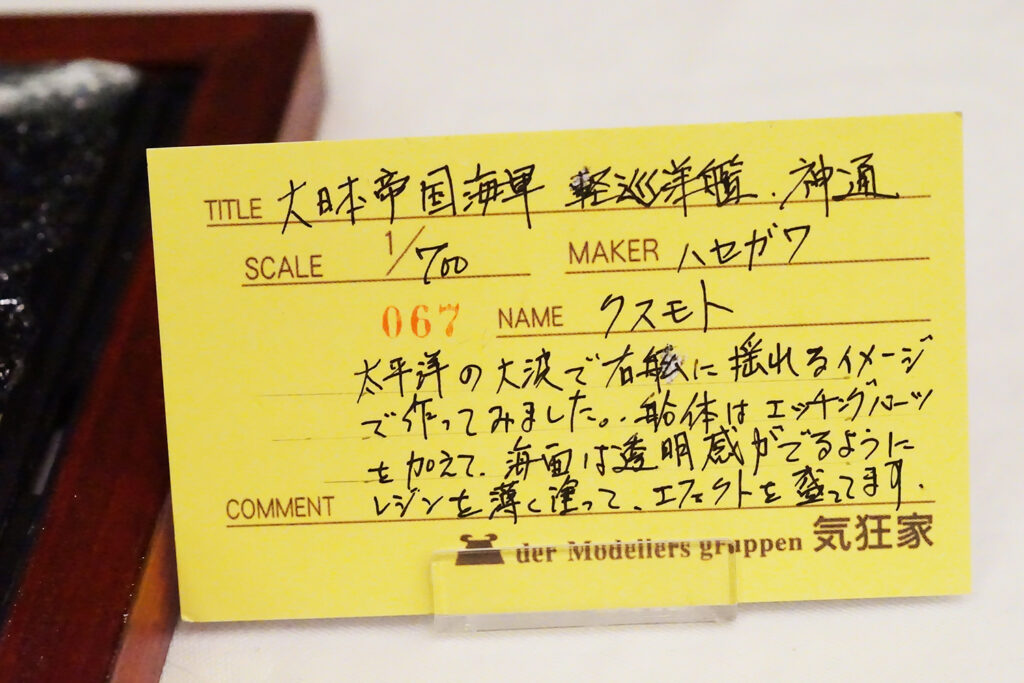 TITLE 大日本帝国海軍 軽巡洋艦.神通
SCALE 1/700 MAKER ハセガワ
067 NAME クスモト
太平洋の大波で右舷に揺れるイメージ
で作ってみました。船体はエッチングパーツ
を加えて、海面は透明感がでるように
COMMENT レジンを薄く塗って、エフェクトを盛ってます.
der Modellers gruppen 気狂家